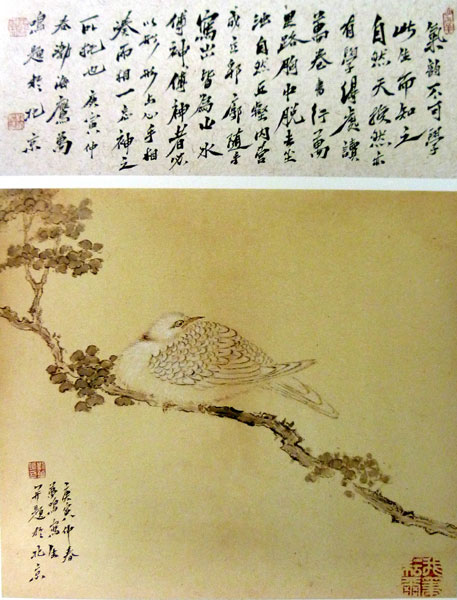 氣韻不可學
此生而知之
自然天授然亦
有學得處讀
萬卷書行萬
里路胸中脫去尘
浊自然丘壑内营
成立郛廓随手
寫出皆為山水
傳神傳神者必
以形形与心手相
凑而相忘神之
所托也庚寅仲
春渤海
題於北京
庚寅仲春
寫生
并題於北京